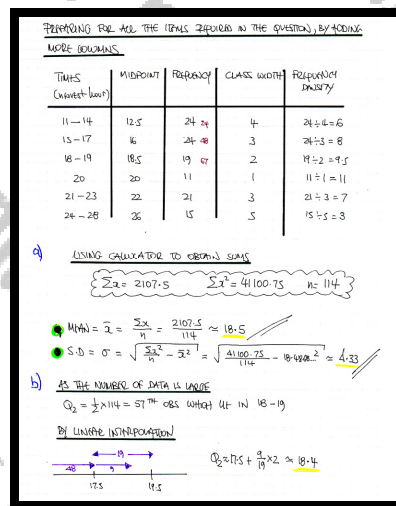 PREPARING FOR ALL THE ITEMS REQUIRED IN THE QUESTION, BY ADDING
MORE COLUMNS
TIMES (nearest hour) MIDPOINT FREQUENCY CLASS WIDTH FREQUENCY DENSITY
11 — 14 12.5 24 24 4 24÷4 = 6
15 — 17 16 24 48 3 24÷3 = 8
18 — 19 18.5 19 67 2 19÷2 = 9.5
20 20 11 1 11÷1 = 11
21 — 23 22 21 3 21÷3 = 7
24 — 28 26 15 5 15÷5 = 3
a) USING CALCULATOR TO OBTAIN SUMS
Σx = 2107.5 Σx² = 41100.75 n = 114
MEAN = x̄ = Σx/n = 2107.5/114 ≈ 18.5
S.D = σ = √(Σx²/n − x̄²) = √(41100.75/114 − 18.4868...²) ≈ 4.33
b) AS THE NUMBER OF DATA IS LARGE
Q₂ = ½ × 114 = 57TH OBS WHICH LIE IN 18 – 19
BY LINEAR INTERPOLATION
19
48 9 Q₂ ≈ 17.5 + 9/19 × 2 ≈ 18.4
17.5 19.5